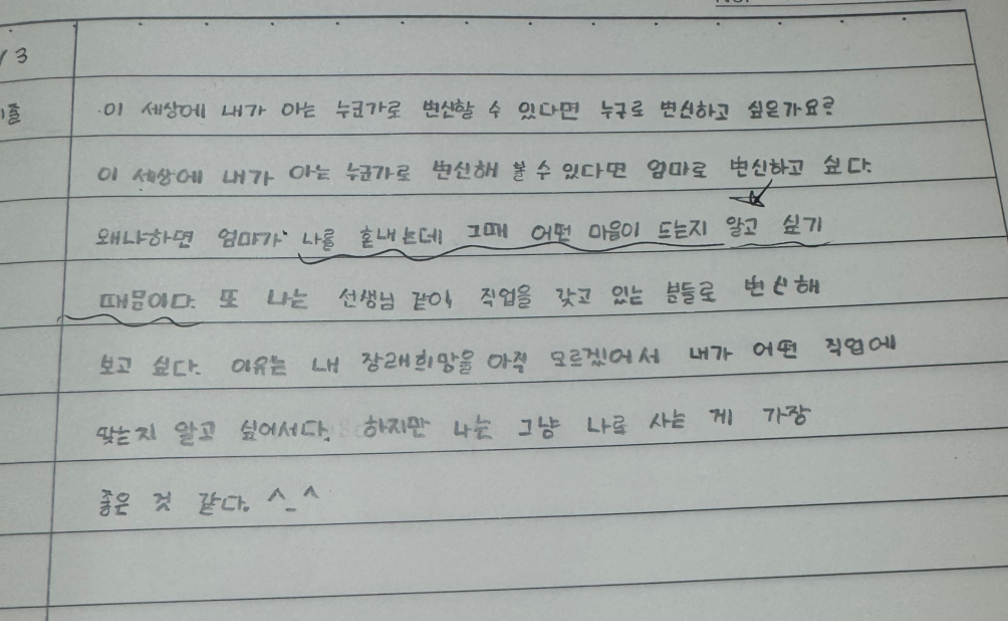 /3
이 세상에 내가 아는 누군가로 변신할 수 있다면 누구로 변신하고 싶은가요?
이 세상에 내가 아는 누군가로 변신해 볼 수 있다면 엄마로 변신하고 싶다.
왜냐하면 엄마가 나를 혼내는데 그때 어떤 마음이 드는지 알고 싶기
때문이다. 또 나는 선생님 같이 직업을 갖고 있는 분들로 변신해
보고 싶다. 이유는 내 장래희망을 아직 모르겠어서 내가 어떤 직업에
맞는지 알고 싶어서다. 하지만 나는 그냥 나로 사는 게 가장
좋은 것 같다. ^_^